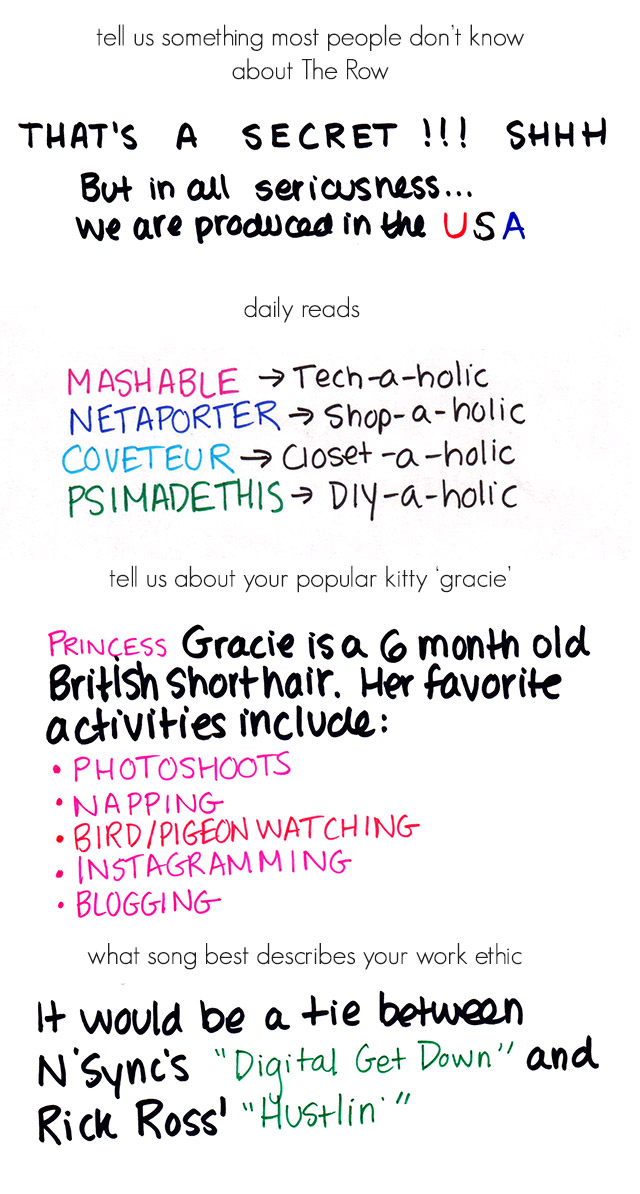 tell us something most people don't know
about The Row
THAT'S A SECRET !!! SHHH
But in all seriousness...
we are produced in the USA
daily reads
MASHABLE → Tech-a-holic
NETAPORTER → Shop-a-holic
COVETEUR → Closet-a-holic
PSIMADETHIS → DIY-a-holic
tell us about your popular kitty 'gracie'
PRINCESS Gracie is a 6 month old
British Shorthair. Her favorite
activities include:
• PHOTOSHOOTS
• NAPPING
• BIRD/PIGEON WATCHING
• INSTAGRAMMING
• BLOGGING
what song best describes your work ethic
It would be a tie between
N'Sync's "Digital Get Down" and
Rick Ross' "Hustlin'"